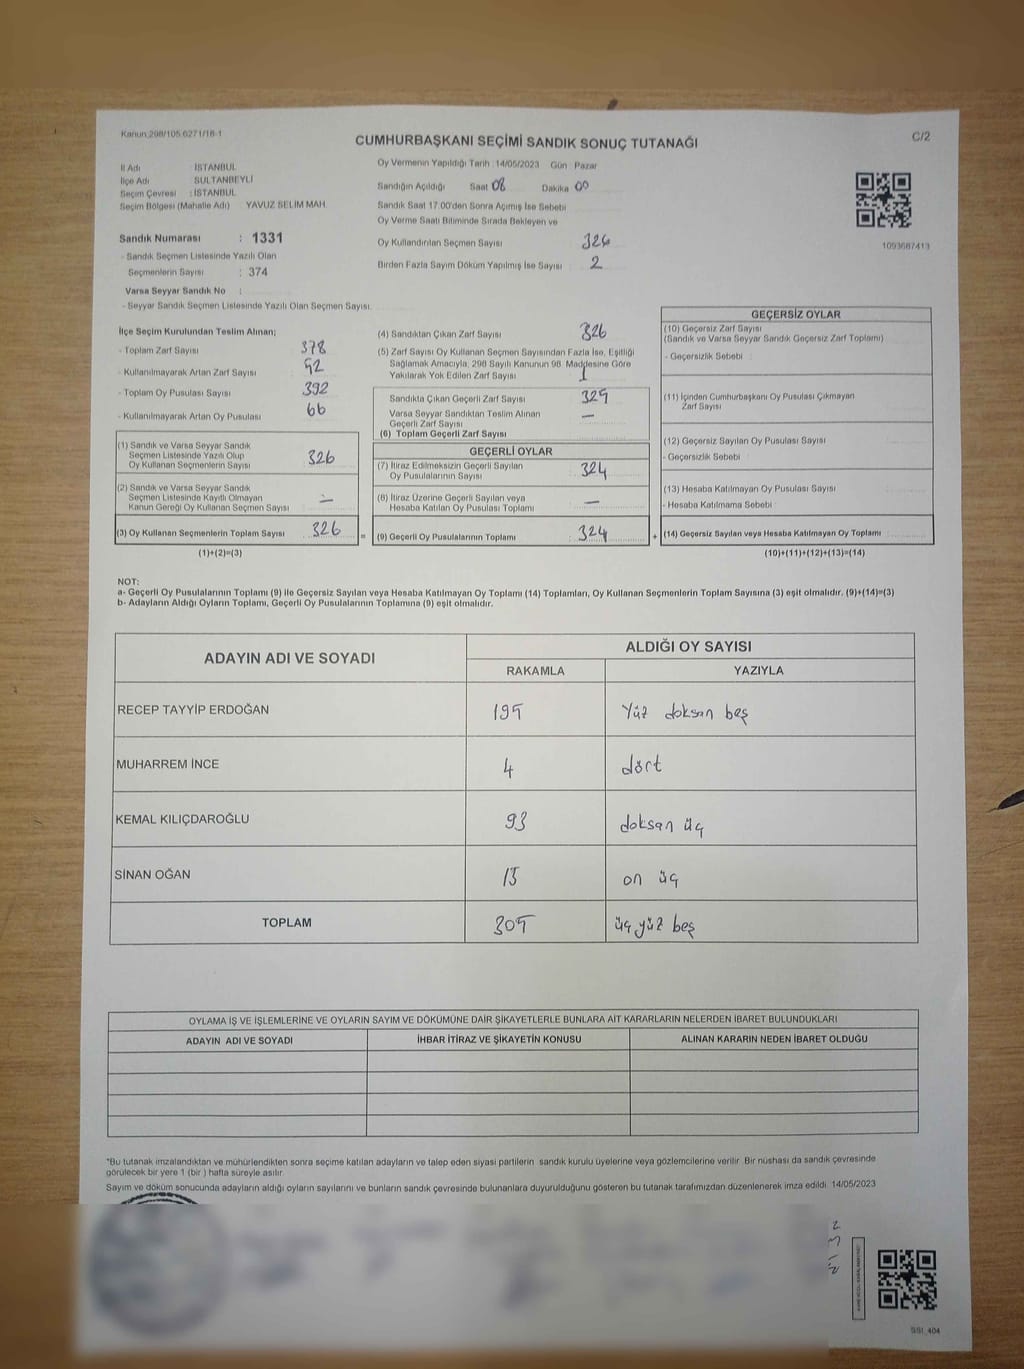 Kanun:298/105.6271/18-1
C/2
CUMHURBAŞKANI SEÇİMİ SANDIK SONUÇ TUTANAĞI
İl Adı : İSTANBUL
İlçe Adı : SULTANBEYLİ
Seçim Çevresi : İSTANBUL
Seçim Bölgesi (Mahalle Adı) YAVUZ SELİM MAH.
Sandık Numarası : 1331
- Sandık Seçmen Listesinde Yazılı Olan
Seçmenlerin Sayısı : 374
Varsa Seyyar Sandık No :
- Seyyar Sandık Seçmen Listesinde Yazılı Olan Seçmen Sayısı:
Oy Vermenin Yapıldığı Tarih :14/05/2023 Gün : Pazar
Sandığın Açıldığı Saat 08 Dakika 00
Sandık Saat 17.00'den Sonra Açımış İse Sebebi
Oy Verme Saati Bitiminde Sırada Bekleyen ve
Oy Kullandırılan Seçmen Sayısı 326
Birden Fazla Sayım Döküm Yapılmış İse Sayısı : 2
1093687413
İlçe Seçim Kurulundan Teslim Alınan;
- Toplam Zarf Sayısı 378
- Kullanılmayarak Artan Zarf Sayısı 52
- Toplam Oy Pusulası Sayısı 392
- Kullanılmayarak Artan Oy Pusulası 66
(1) Sandık ve Varsa Seyyar Sandık
Seçmen Listesinde Yazılı Olup
Oy Kullanan Seçmenlerin Sayısı 326
(2) Sandık ve Varsa Seyyar Sandık
Seçmen Listesinde Kayıtlı Olmayan
Kanun Gereği Oy Kullanan Seçmen Sayısı —
(3) Oy Kullanan Seçmenlerin Toplam Sayısı 326
(1)+(2)=(3)
=
(4) Sandıktan Çıkan Zarf Sayısı 326
(5) Zarf Sayısı Oy Kullanan Seçmen Sayısından Fazla İse, Eşitliği
Sağlamak Amacıyla, 298 Sayılı Kanunun 98. Maddesine Göre
Yakılarak Yok Edilen Zarf Sayısı 1
Sandıkta Çıkan Geçerli Zarf Sayısı 325
Varsa Seyyar Sandıktan Teslim Alınan
Geçerli Zarf Sayısı —
(6) Toplam Geçerli Zarf Sayısı
GEÇERLİ OYLAR
(7) İtiraz Edilmeksizin Geçerli Sayılan
Oy Pusulalarının Sayısı 324
(8) İtiraz Üzerine Geçerli Sayılan veya
Hesaba Katılan Oy Pusulası Toplamı —
(9) Geçerli Oy Pusulalarının Toplamı 324
+
GEÇERSİZ OYLAR
(10) Geçersiz Zarf Sayısı
(Sandık ve Varsa Seyyar Sandık Geçersiz Zarf Toplamı)
- Geçersizlik Sebebi
(11) İçinden Cumhurbaşkanı Oy Pusulası Çıkmayan
Zarf Sayısı
(12) Geçersiz Sayılan Oy Pusulası Sayısı
- Geçersizlik Sebebi
(13) Hesaba Katılmayan Oy Pusulası Sayısı
- Hesaba Katılmama Sebebi
(14) Geçersiz Sayılan veya Hesaba Katılmayan Oy Toplamı
(10)+(11)+(12)+(13)=(14)
NOT:
a- Geçerli Oy Pusulalarının Toplamı (9) ile Geçersiz Sayılan veya Hesaba Katılmayan Oy Toplamı (14) Toplamları, Oy Kullanan Seçmenlerin Toplam Sayısına (3) eşit olmalıdır. (9)+(14)=(3)
b- Adayların Aldığı Oyların Toplamı, Geçerli Oy Pusulalarının Toplamına (9) eşit olmalıdır.
ADAYIN ADI VE SOYADI
ALDIĞI OY SAYISI
RAKAMLA YAZIYLA
RECEP TAYYİP ERDOĞAN 195 Yüz doksan beş
MUHARREM İNCE 4 dört
KEMAL KILIÇDAROĞLU 93 doksan üç
SİNAN OĞAN 13 on üç
TOPLAM 305 üç yüz beş
OYLAMA İŞ VE İŞLEMLERİNE VE OYLARIN SAYIM VE DÖKÜMÜNE DAİR ŞİKAYETLERLE BUNLARA AİT KARARLARIN NELERDEN İBARET BULUNDUKLARI
ADAYIN ADI VE SOYADI İHBAR İTİRAZ VE ŞİKAYETİN KONUSU ALINAN KARARIN NEDEN İBARET OLDUĞU
*Bu tutanak imzalandıktan ve mühürlendikten sonra seçime katılan adayların ve talep eden siyasi partilerin sandık kurulu üyelerine veya gözlemcilerine verilir. Bir nüshası da sandık çevresinde
görülecek bir yere 1 (bir ) hafta süreyle asılır.
Sayım ve döküm sonucunda adayların aldığı oyların sayılarını ve bunların sandık çevresinde bulunanlara duyurulduğunu gösteren bu tutanak tarafımızdan düzenlenerek imza edildi. 14/05/2023
SSI_404